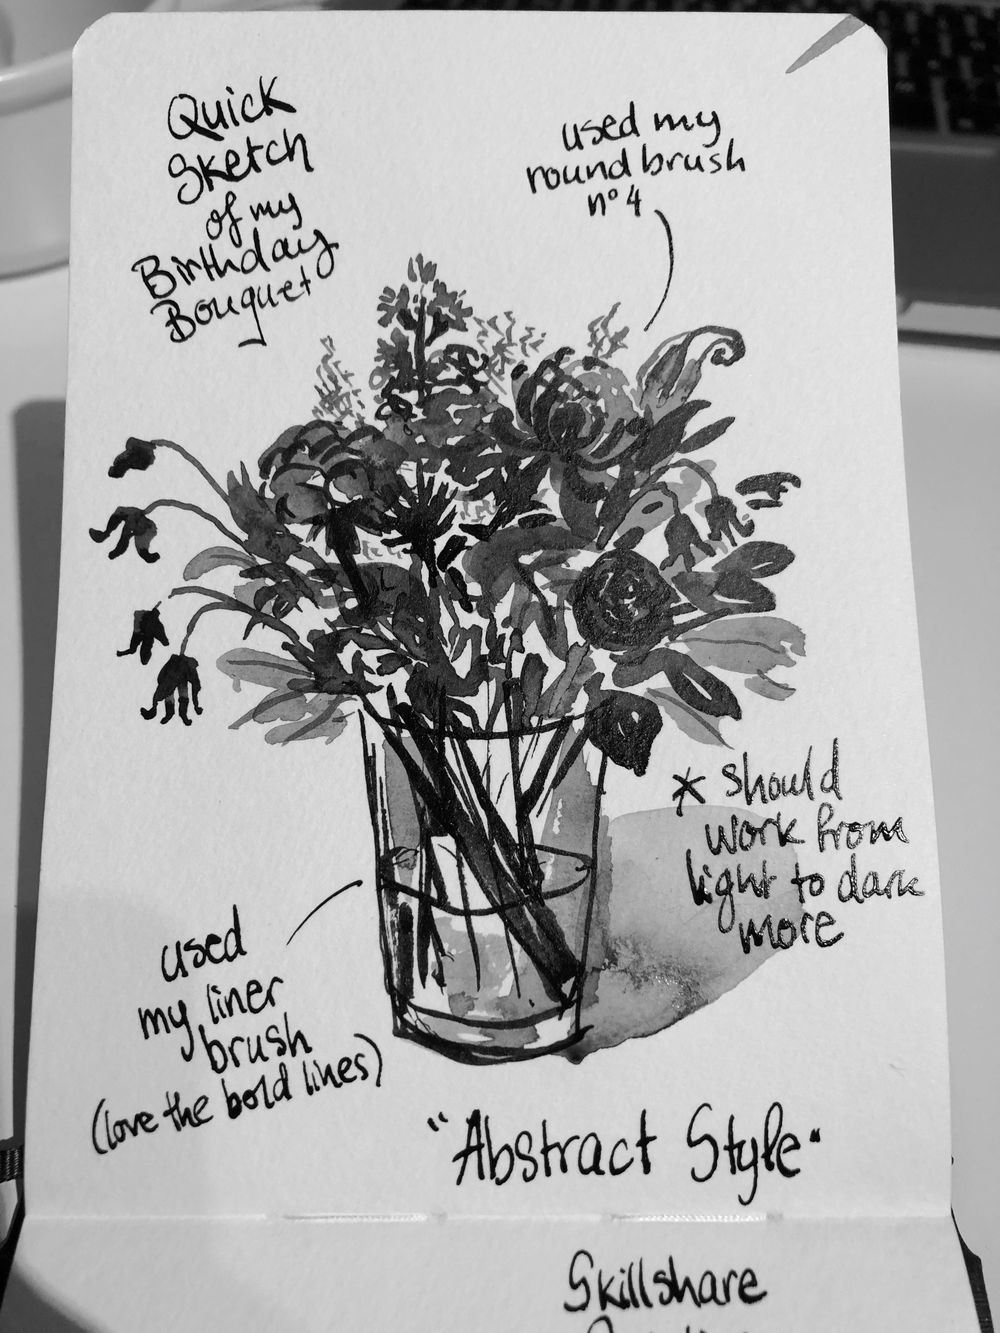 Quick
Sketch
of my
Birthday
Bouquet
used my
round brush
n° 4
* should
work from
light to dark
more
used
my liner
brush
(love the bold lines)
"Abstract Style"
Skillshare